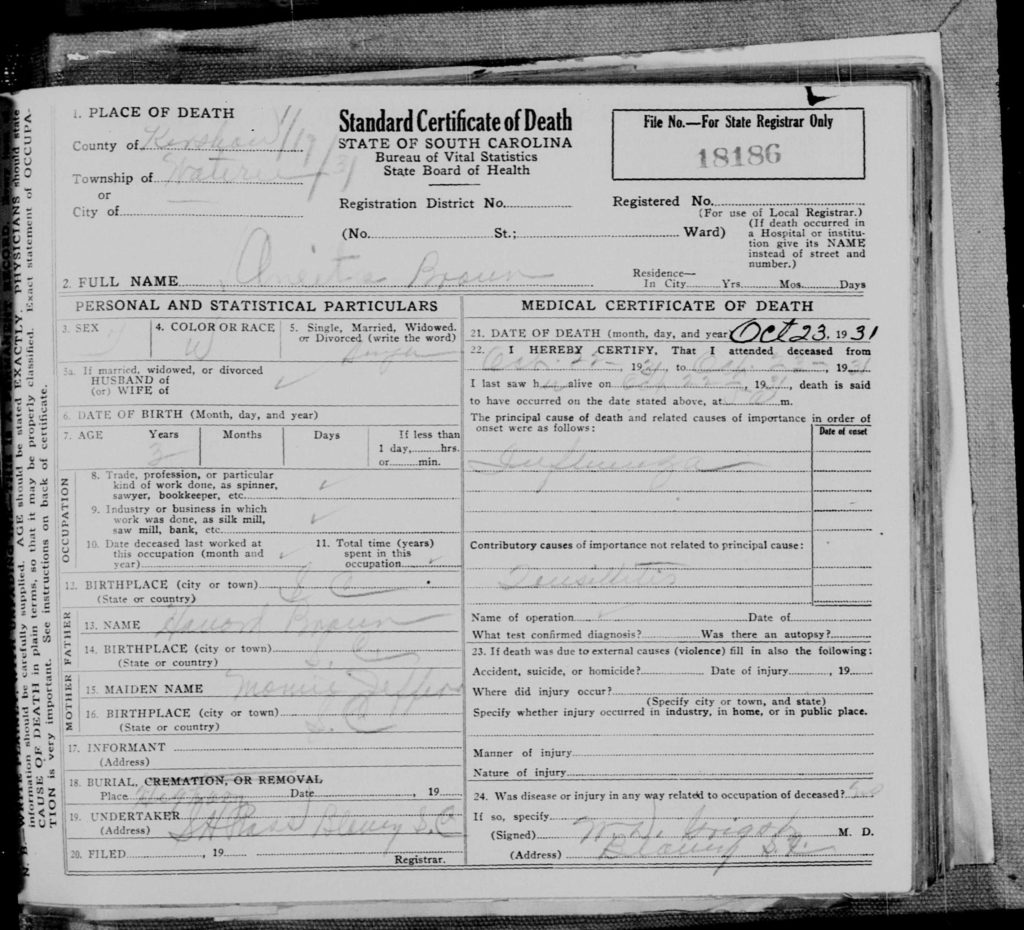 N. B.—WRITE PLAINLY, WITH UNFADING INK—THIS IS A PERMANENT RECORD.
information should be carefully supplied. AGE should be stated EXACTLY. PHYSICIANS should state
CAUSE OF DEATH in plain terms, so that it may be properly classified. Exact statement of OCCUPA-
TION is very important. See instructions on back of certificate.
1. PLACE OF DEATH
County of Kershaw
Township of Wateree
or
City of
Standard Certificate of Death
STATE OF SOUTH CAROLINA
Bureau of Vital Statistics
State Board of Health
File No.—For State Registrar Only
18186
Registration District No.
Registered No.
(For use of Local Registrar.)
(No. St.; Ward)
(If death occurred in
a Hospital or institu-
tion give its NAME
instead of street and
number.)
2. FULL NAME Brown
Residence—
In City Yrs. Mos. Days
PERSONAL AND STATISTICAL PARTICULARS
3. SEX
4. COLOR OR RACE
W
5. Single, Married, Widowed.
or Divorced (write the word)
Single
5a. If married, widowed, or divorced
HUSBAND of
(or) WIFE of
6. DATE OF BIRTH (Month, day, and year)
7. AGE Years Months Days If less than
3 1 day, hrs.
or min.
OCCUPATION
8. Trade, profession, or particular
kind of work done, as spinner,
sawyer, bookkeeper, etc.
9. Industry or business in which
work was done, as silk mill,
saw mill, bank, etc.
10. Date deceased last worked at
this occupation (month and
year)
11. Total time (years)
spent in this
occupation
12. BIRTHPLACE (city or town) S C
(State or country)
FATHER
13. NAME Brown
14. BIRTHPLACE (city or town) S. C
(State or country)
MOTHER
15. MAIDEN NAME
16. BIRTHPLACE (city or town) S. C
(State or country)
17. INFORMANT
(Address)
18. BURIAL, CREMATION, OR REMOVAL
Place Date , 19
19. UNDERTAKER
(Address) Blaney S. C
20. FILED , 19
Registrar.
MEDICAL CERTIFICATE OF DEATH
21. DATE OF DEATH (month, day, and year) Oct 23, 1931
22. I HEREBY CERTIFY, That I attended deceased from
Oct. , 1931, to Oct. , 1931
I last saw h alive on Oct 22 , 1931, death is said
to have occurred on the date stated above, at m.
The principal cause of death and related causes of importance in order of
onset were as follows:
Date of onset
Influenza
Contributory causes of importance not related to principal cause:
Tonsillitis
Name of operation Date of
What test confirmed diagnosis? Was there an autopsy?
23. If death was due to external causes (violence) fill in also the following:
Accident, suicide, or homicide? Date of injury , 19
Where did injury occur?
(Specify city or town, and state)
Specify whether injury occurred in industry, in home, or in public place.
Manner of injury
Nature of injury
24. Was disease or injury in any way related to occupation of deceased? no
If so, specify
(Signed) W. D. Grigsby M. D.
(Address) Blaney S. C.